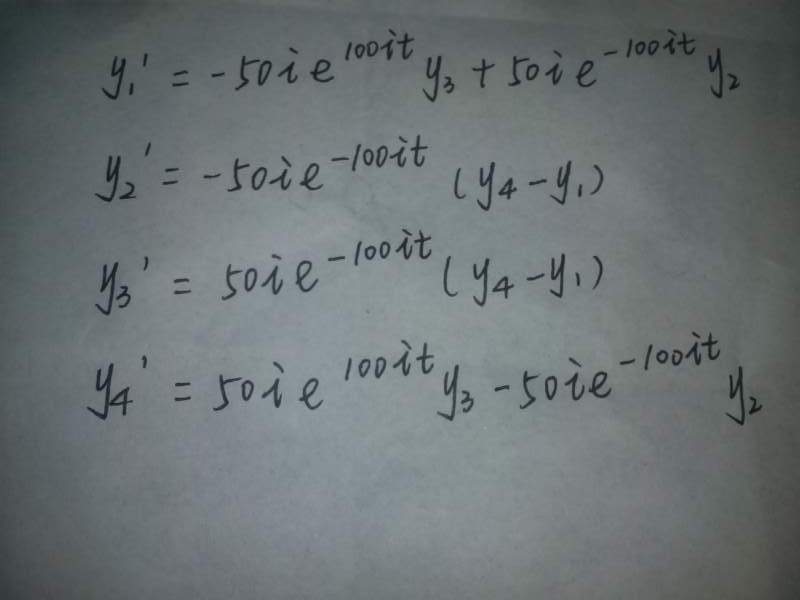 y₁' = -50ie^{100it} y₃ + 50ie^{-100it} y₂
y₂' = -50ie^{-100it} (y₄ - y₁)
y₃' = 50ie^{-100it} (y₄ - y₁)
y₄' = 50ie^{100it} y₃ - 50ie^{-100it} y₂